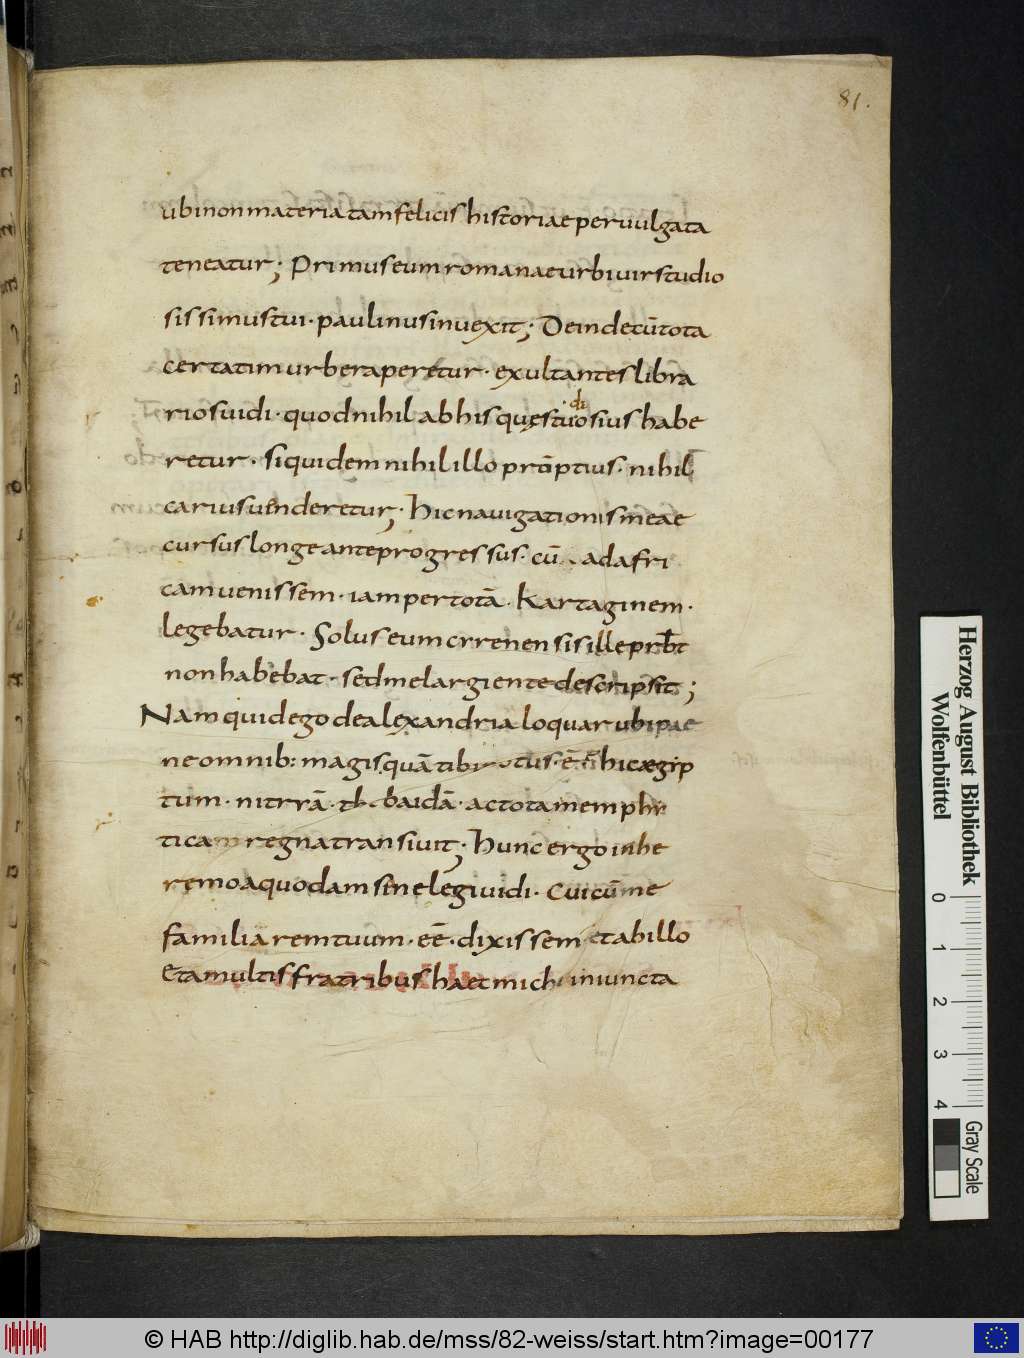 81.
ubi non materia tam felicis historiae pervulgata
teneatur; Primus eum romanae urbi vir studio
sissimus tui · paulinus invexit; Deinde cū tota
certatim urbe raperetur · exultantes libra
rios vidi · quod nihil ab his quęstuosius habe
retur · siquidem nihil illo prōptius · nihil
carius venderetur; Hic navigationis meae
cursus longe ante progressus · cū ad afri
cam venissem · iam per totā Kartaginem ·
legebatur · Solus eum cyrenensis ille prbt
non habebat · sed me largiente descripsit;
Nam quid ego de alexandria loquar ubi pae
ne omnib: magis quā tibi ē hic aegyp
tum · nitriā · thebaidā · ac tota memphi
tica regna transivit; Hunc ergo in he
remo a quodam sene legi vidi · Cui cū me
familiarem tuum · eē · dixissem et ab illo
Et a multis fratribus haec michi iniuncta
Herzog August Bibliothek
Wolfenbüttel
0 1 2 3 4
Gray Scale
© HAB http://diglib.hab.de/mss/82-weiss/start.htm?image=00177